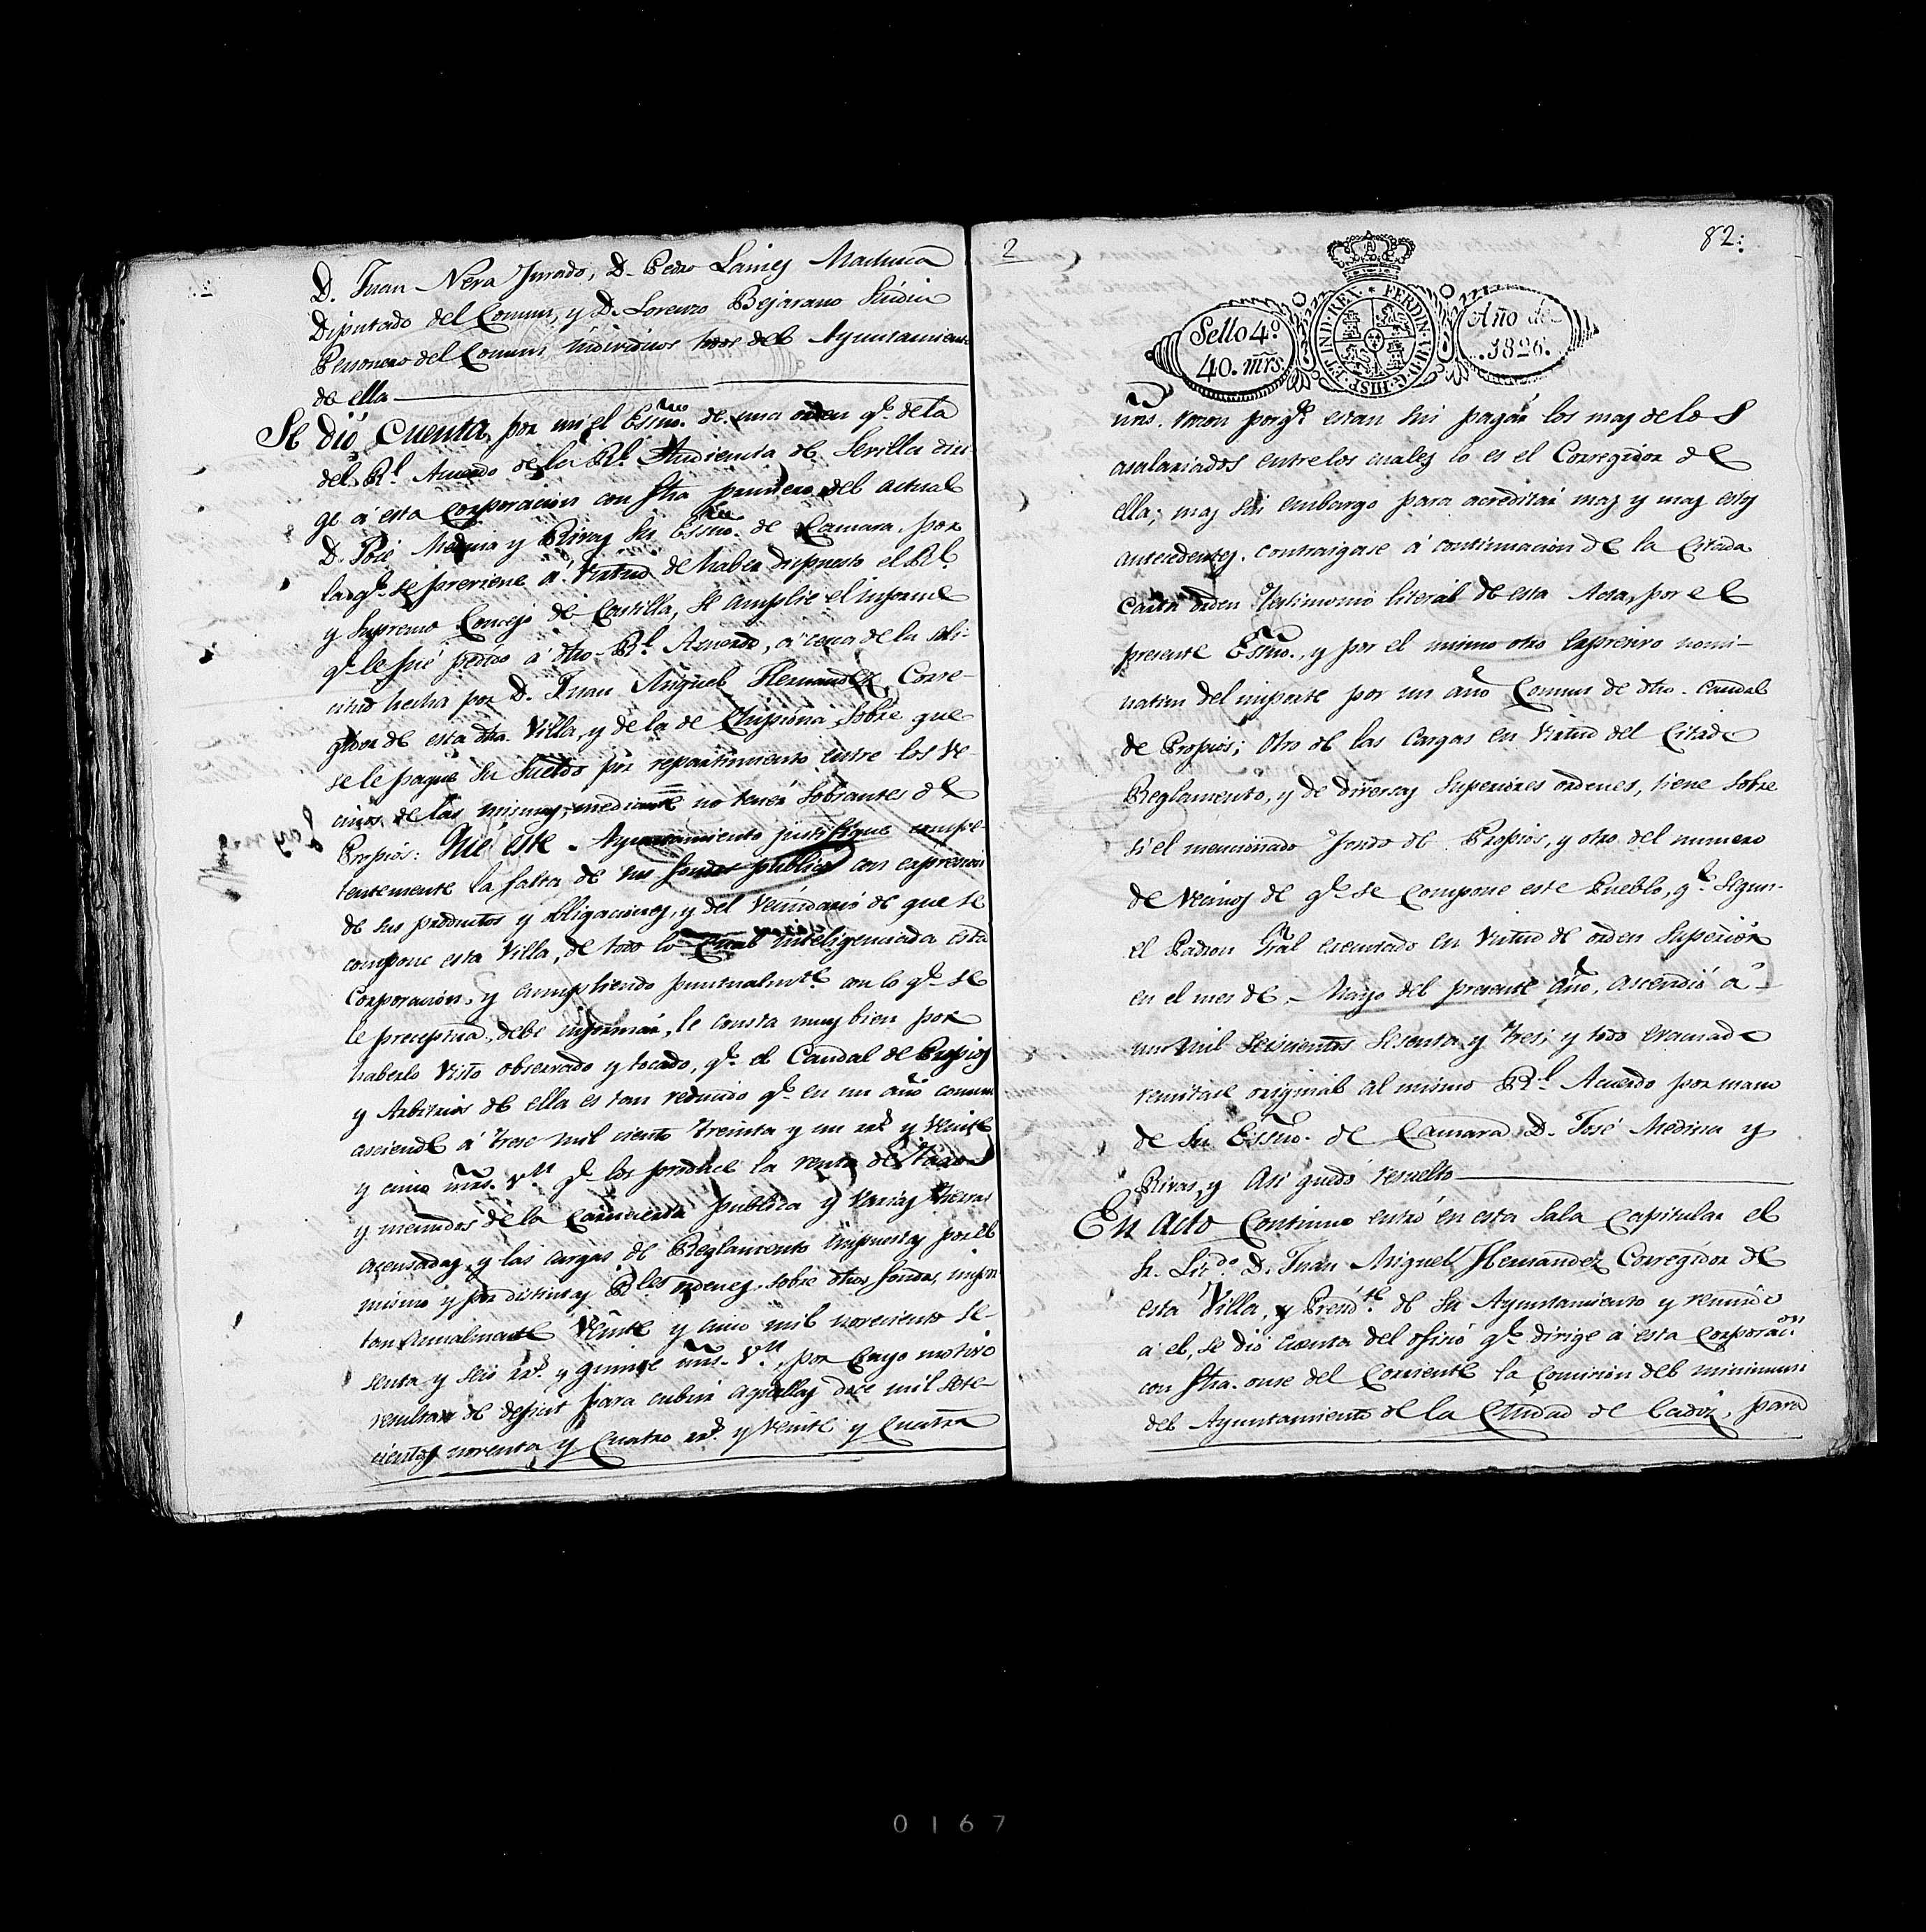 D. Juan Nera Jurado, D. Pedro Laines Machuca
Diputado del Comun, y D. Lorenzo Bejarano Sindico
Personero del Comun individuos todos del Ayuntamiento
de ella
Se dió Cuenta, por mi el Essno. de una orden qe. de la
del Rl. Acuerdo de la Rl. Audiencia de Sevilla diri-
ge á esta Corporacion con fha primero del actual
D. José Medina y Rivas su Essno. de Camara, por
la qe. se previene á virtud de haber dispuesto el Rl.
y Supremo Concejo de Castilla, se amplie el informe
qe. le fué pedido á dho. Rl. Acuerdo, á cerca de la soli-
citud hecha por D. Juan Miguel Hernandez, Corre-
gidor de esta dha. Villa, y de la de Chipiona sobre que
se le pague su sueldo por repartimiento entre los ve
cinos de las mismas, mediante no tener sobrantes de
Propios: Que este Ayuntamiento justifique compe-
tentemente la falta de sus fondos publicos con expresion
de sus productos y obligaciones, y del vecindario de que se
compone esta Villa, de todo lo Cual inteligenciada esta
Corporacion, y cumpliendo puntualmte. con lo qe. se
le preceptua, debe informar, le consta muy bien por
haberlo visto observado y tocado, qe. el Caudal de Propios
y Arbitrios de ella es tan reducido qe. en un año comun
asciende á trese mil ciento treinta y un rs. y veinte
y cinco mrs. vn. qe. los produce la renta de
y menudos de la Carniceria publica y varias tierras
acensadas, y las cargas de Reglamento impuestas por el
mismo y por distintas Rles. ordenes sobre dhos fondos, impor
tan Anualmente veinte y cinco mil novecientos se-
senta y seis rs. y quince mrs. vn., por Cuyo motivo
resultan de deficit para cubrir aquellas doce mil sete-
cientos noventa y Cuatro rs. y veinte y Cuatro
2
82.
Sello 4º.
40. mrs.
FERDIN. VII. D. G. HISP. ET IND. REX.
Año de
1826.
mrs. vellon porqe. estan sin pagar los mas de los
asalariados entre los cuales lo es el Corregidor de
ella; mas sin embargo para acreditar mas y mas estos
antecedentes. contraigase á continuacion de la Citada
Carta orden Testimonio literal de esta Acta, por el
presente Essno., y por el mismo otro Expresivo nomi-
natim del importe por un año Comun de dho. Caudal
de Propios; Otro de las Cargas en virtud del Citado
Reglamento, y de diversas Superiores ordenes, tiene sobre
si el mencionado fondo de Propios, y otro del numero
de vecinos de qe. se compone este Pueblo, qe. segun
el Padron Gral executado en virtud de orden Superior
en el mes de Mayo del presente Año, ascendió á
un mil seiscientos sesenta y tres; y todo evacuado
remitase original al mismo Rl. Acuerdo por mano
de su Essno. de Camara D. José Medina y
Rivas, y Asi quedó resuelto
En Acto Continuo entró en esta Sala Capitular el
Sr. Licdo. D. Juan Miguel Hernandez Corregidor de
esta Villa, y Presdte. de su Ayuntamiento y reunido
á el, se dió cuenta del oficio qe. dirige á esta Corporacon.
con fha. onse del Corriente la Comision del minimun
del Ayuntamiento de la Ciudad de Cadiz, para
0167